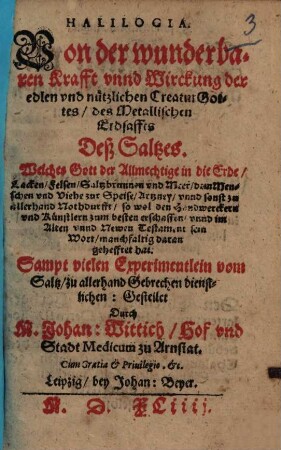 HALILOGIA.
3
Von der wunderba-
ren Krafft vnnd Wirckung der
edlen vnd nützlichen Creatur Got-
tes / des Metallischen
Erdsaffts
Deß Saltzes.
Welches Gott der Allmechtige in die Erde /
Lacken / Felsen / Saltzbrunnen vnd Meer / den Men-
schen vnd Viehe zur Speise / Artzney / vnnd sonst zu
allerhand Nothdurfft / so wol den Handwerckern
vnd Künstlern zum besten erschaffen / vnnd im
Alten vnnd Newen Testament sein
Wort / manchfaltig daran
geheffret hat.
Sampt vielen Experimentlein vom
Saltz / zu allerhand Gebrechen dienst-
lichen: Gestellet
Durch
M. Johan: Wittich / Hof vnd
Stadt Medicum zu Arnstat.
Cum Gratia & Priuilegio. &c.
Leipzig / bey Johan: Beyer.
M. D. XCiiij.